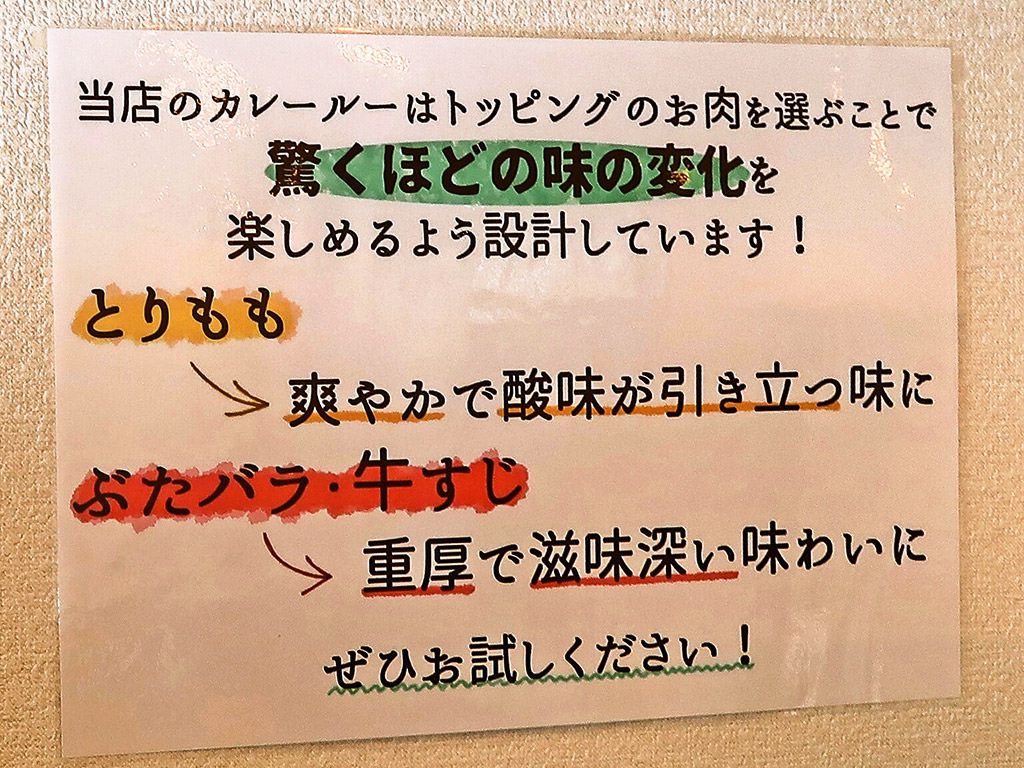 当店のカレールーはトッピングのお肉を選ぶことで
驚くほどの味の変化を
楽しめるよう設計しています!
とりもも
爽やかで酸味が引き立つ味に
ぶたバラ・牛すじ
重厚で滋味深い味わいに
ぜひお試しください!